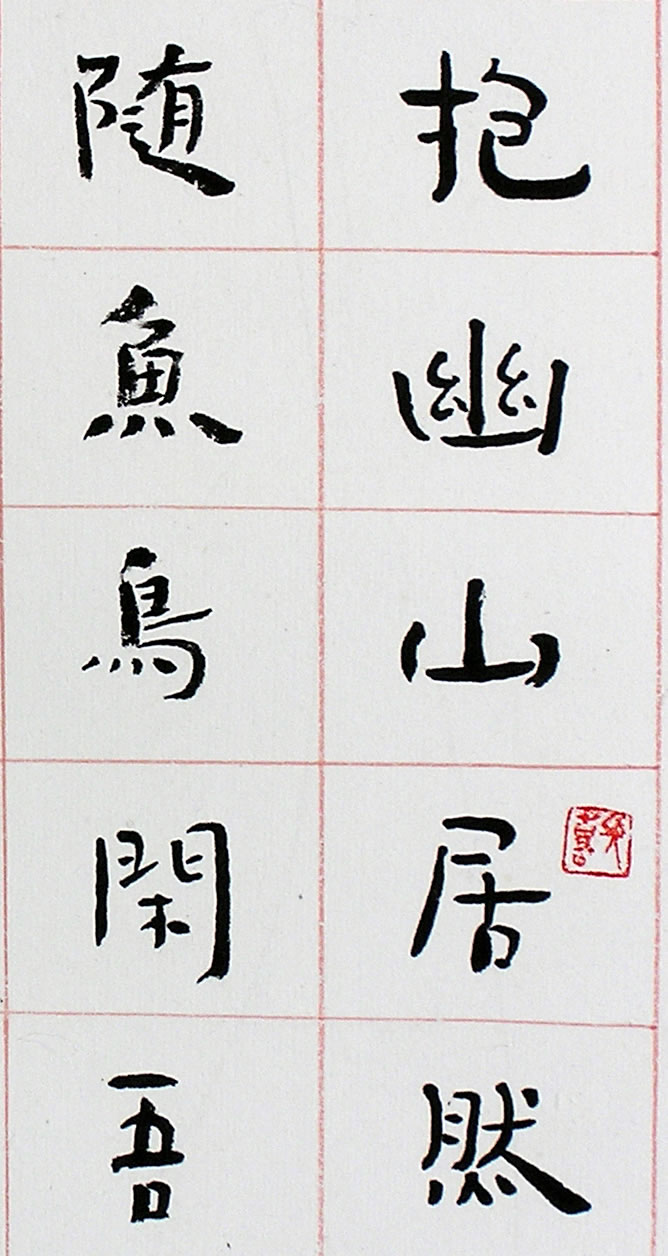 抱幽山居然
随魚鳥閑吾